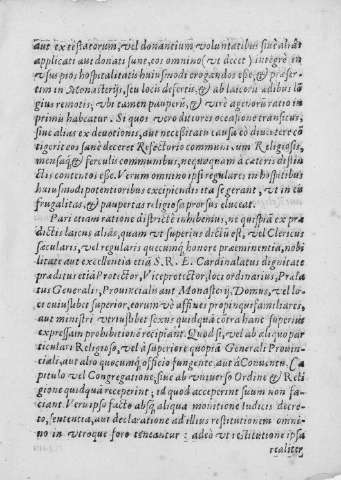 aut ex testatorum, vel donantium voluntatibus siuè aliàs
applicati aut donati sunt, eos omnino (vt decet) integrè in
vsus pios hospitalitatis huiusmodi erogandos esse, & præser-
tim in Monasterijs, seu locis desertis, & ab laicorū ædibus lō
gius remotis; vbi tamen pauperū, & verè ægenorū ratio in
primis habeatur. Si quos verò ditiores occasione transitus,
siue alias ex deuotionis, aut necessitatis causa eò diuertere cō
tigerit eos sanè deceret Refectorio communi, cum Religiosis,
mensaq; & ferculis communibus, nequaquam à cæteris distin
ctis contentos esse. Verum omnino ipsi regulares in hospitibus
huiusmodi potentioribus excipiendis ita se gerant, vt in eis
frugalitas, & paupertas religiosa prorsus eluceat.
Pari etiam ratione districtè inhibentes, ne quispiā ex præ
dictis laicus aliàs, quam vt superius dictū est, vel Clericus
sæcularis, vel regularis quacumq; honore præeminentia, nobi
litate aut excellentia etiā S. R. E. Cardinalatus dignitate
præditus etiā Protector, Viceprotector, loci ordinarius, Præla
tus Generalis, Prouincialis aut Monasterij, Domus, vel lo-
ci cuiuslibet superior, eorum vè affines propinqui familiares,
aut ministri vtriuslibet sexus quidquā cōtra hanc superius
expressam prohibitionē recipiant. Quod si, vel ab aliquo par
ticulari Religioso, vel à superiore quopiā Generali Prouin-
ciali, aut alio quocumq; officio fungente, aut à Conuentu, Ca
pitulo vel Congregatione, siue ab vniuerso Ordine & Reli
gione quidquā receperint; id quod acceperint suum non fa-
ciant. Verum ipso facto absq; aliqua monitione Iudicis decre-
to, sententia, aut declaratione ad illius restitutionem omni-
no in vtroque foro teneantur: adeò vt restitutione ipsa
realiter